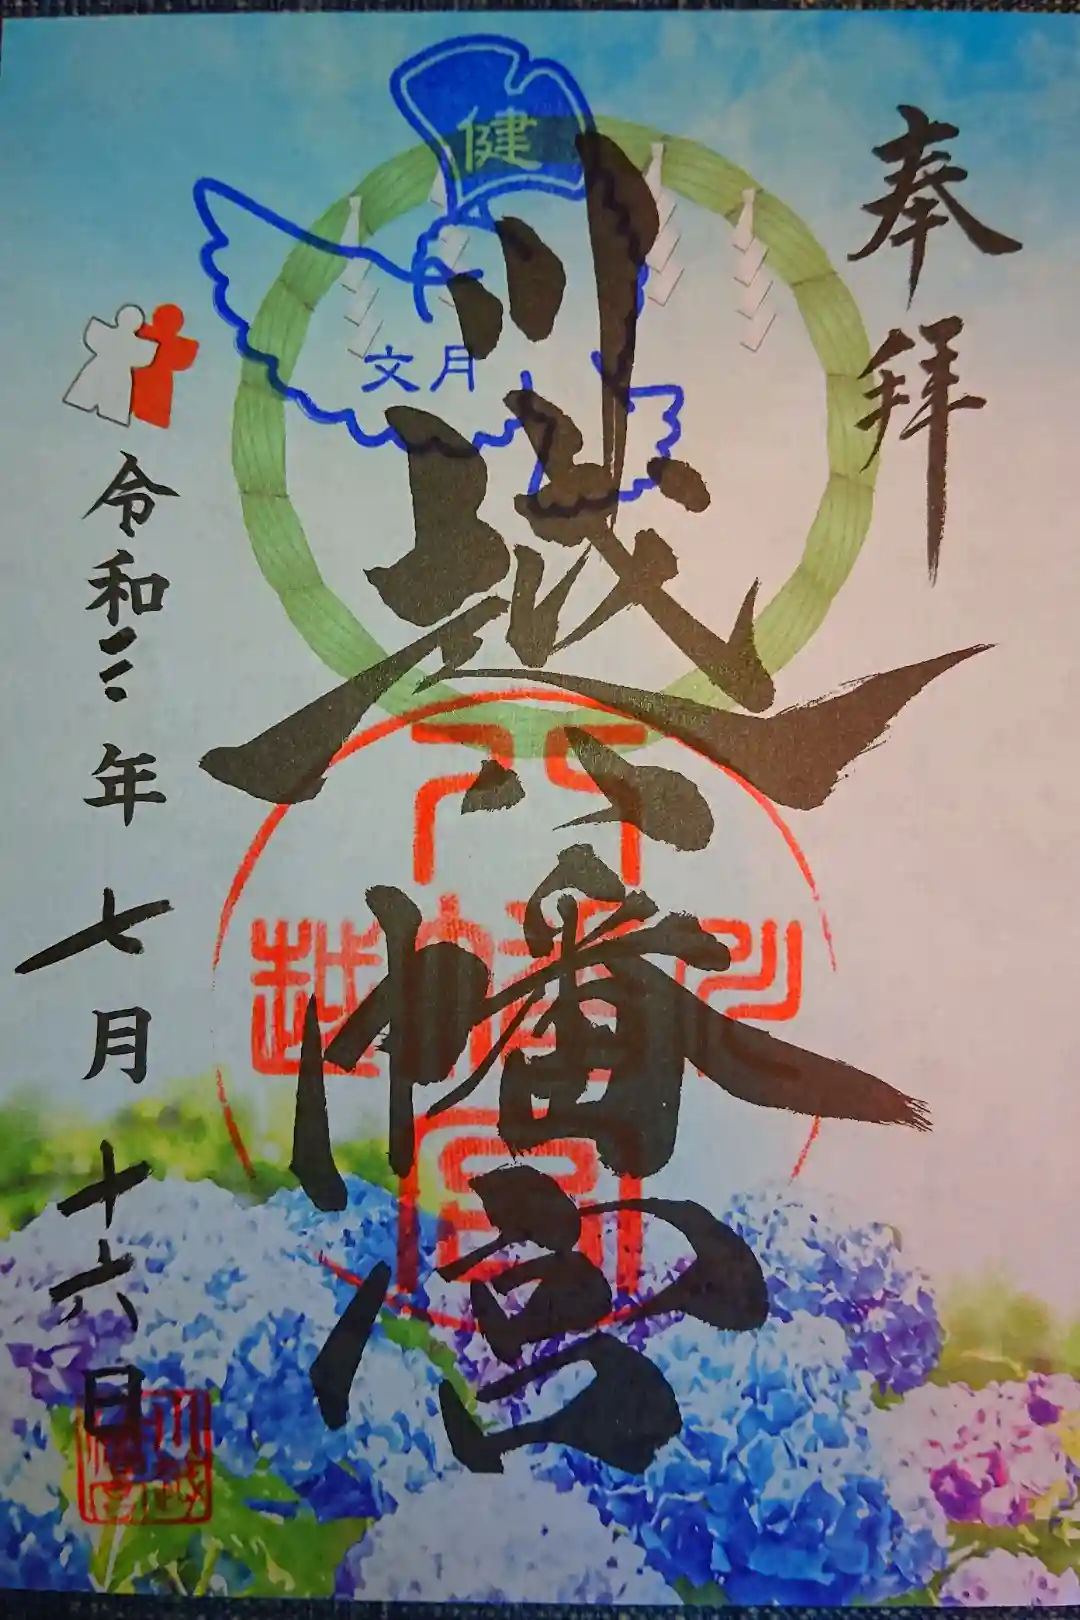 奉拝
健
文月
川越八幡宮
川越八幡宮
令和二年七月十六日
川越八幡宮